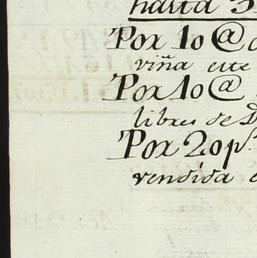 hasta 3
Por 10 @
viña este
Por 10 @
libres de D
Por 20 p.s
vendida